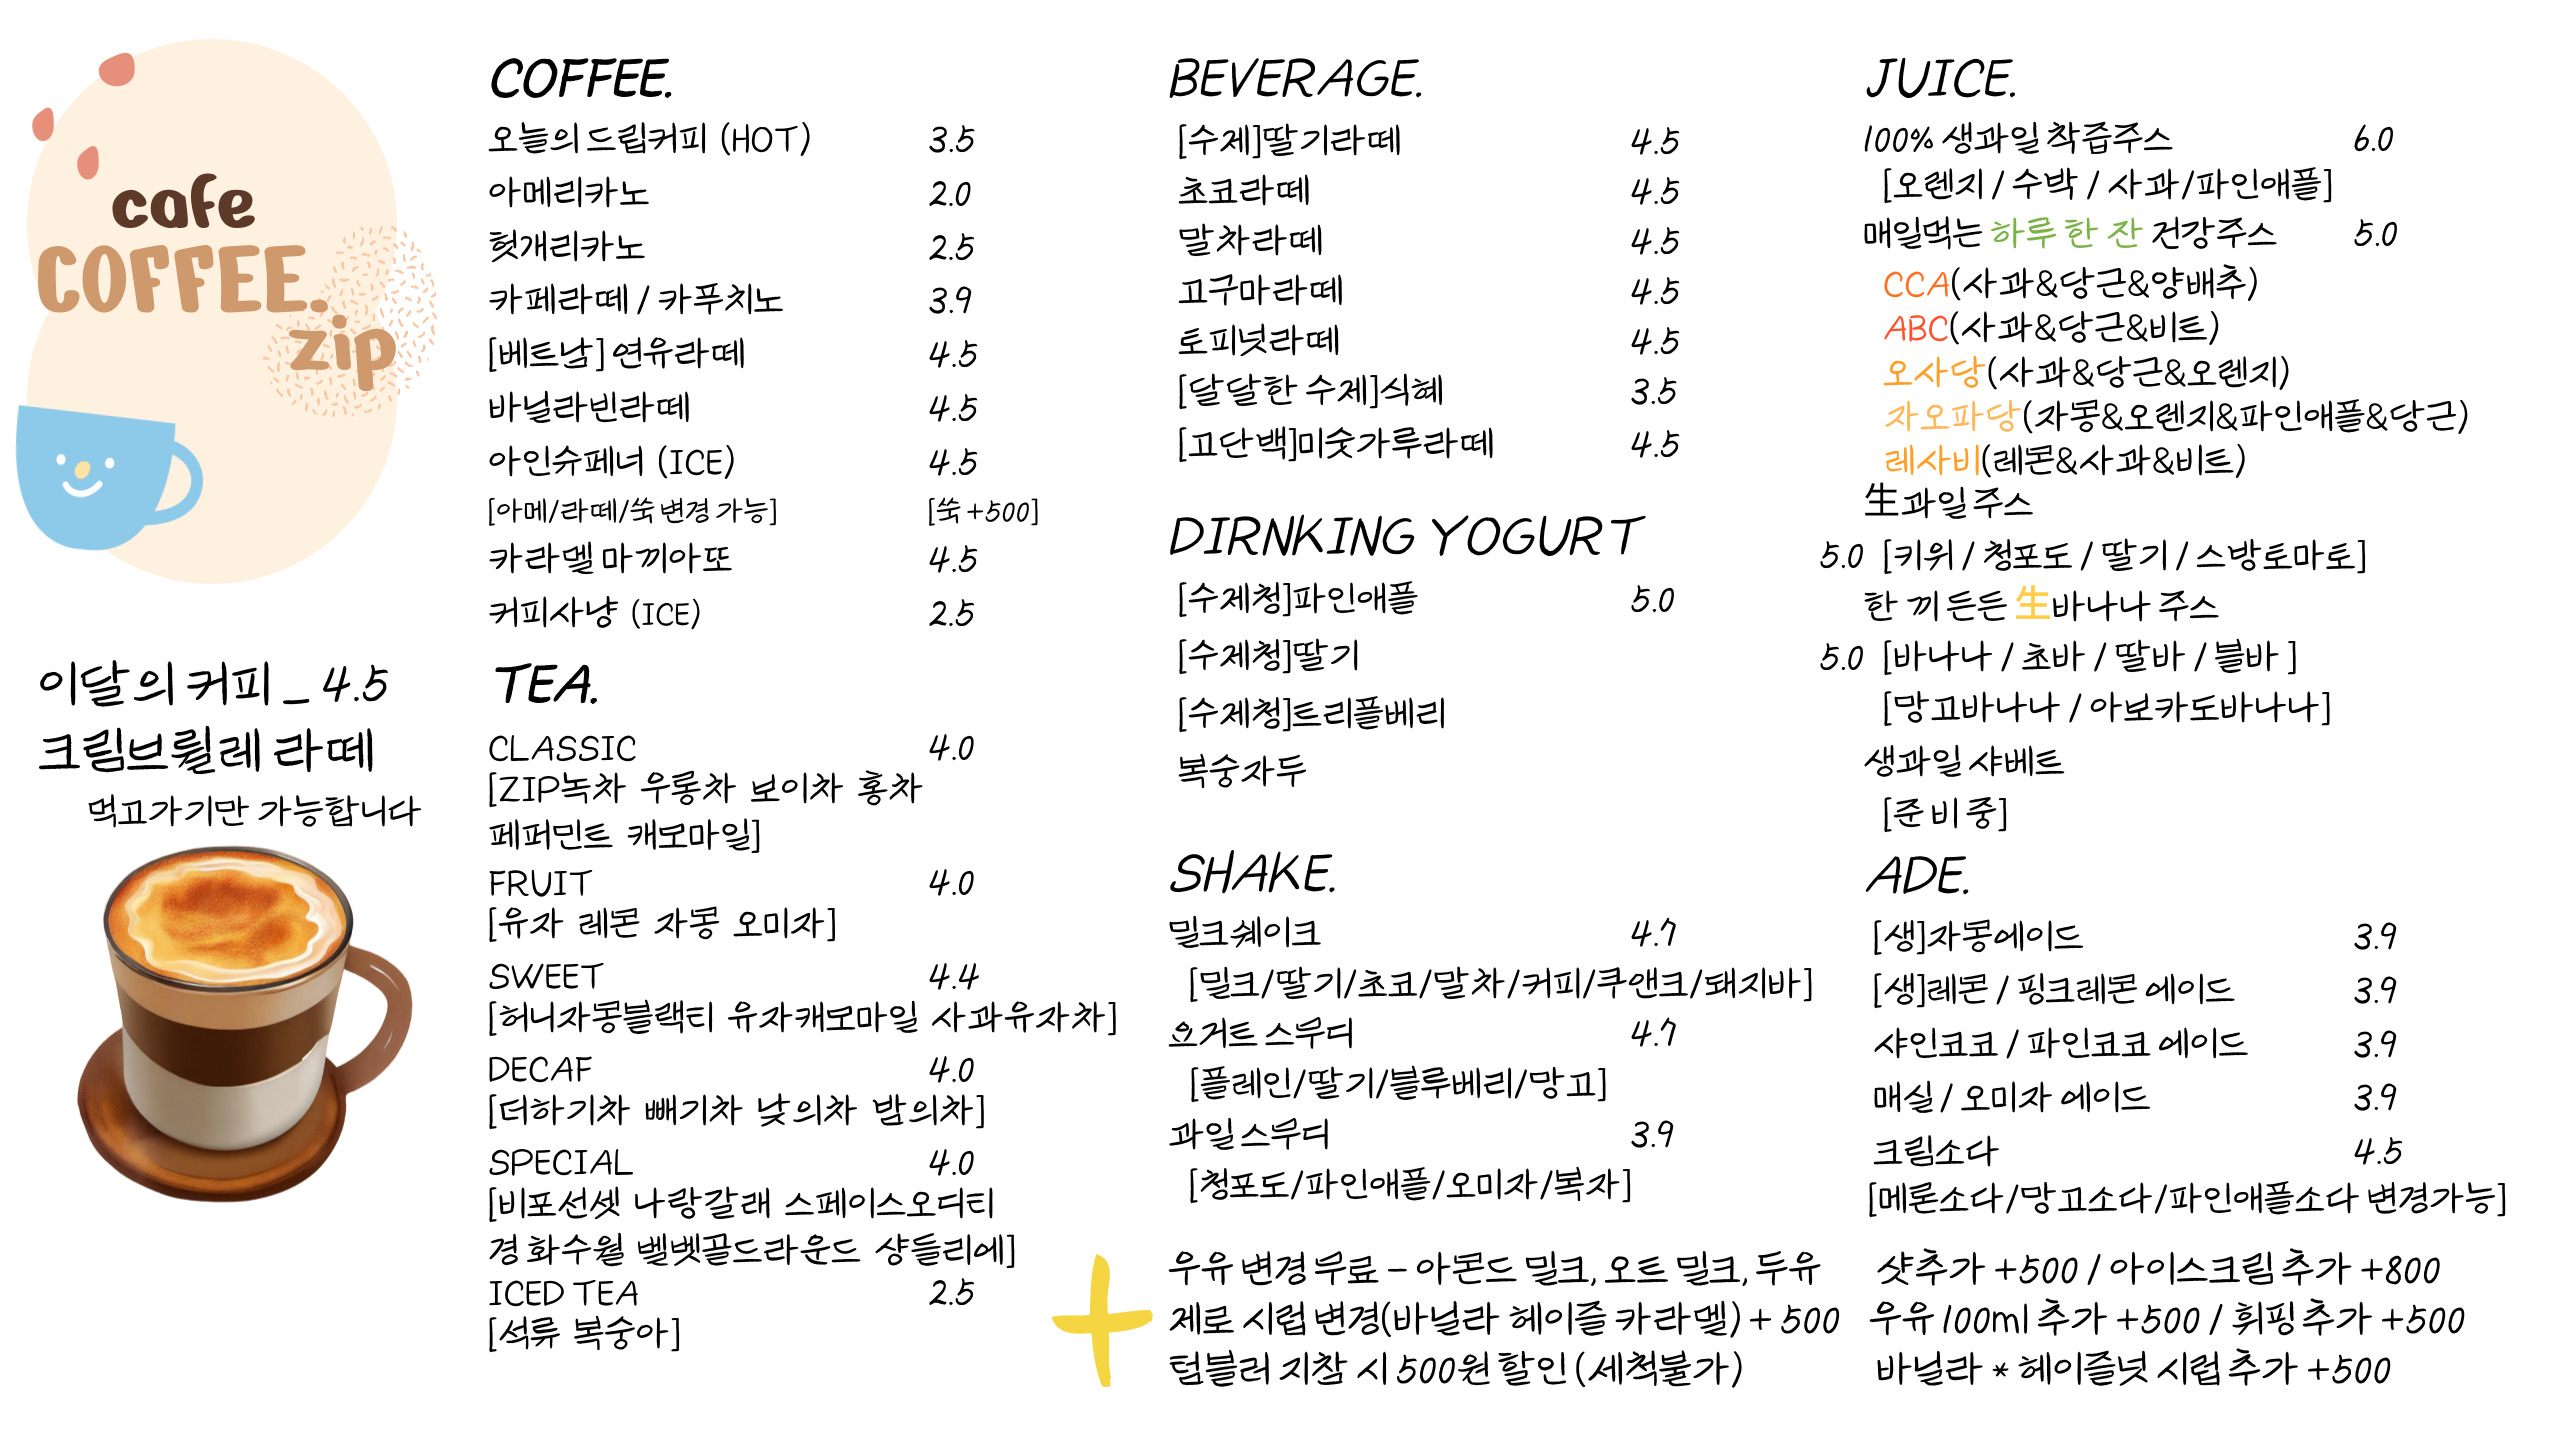 cafe
COFFEE.
zip
이달의 커피 _ 4.5
크림브륄레 라떼
먹고가기만 가능합니다
COFFEE.
오늘의 드립커피 (HOT) 3.5
아메리카노 2.0
헛개리카노 2.5
카페라떼 / 카푸치노 3.9
[베트남] 연유라떼 4.5
바닐라빈라떼 4.5
아인슈페너 (ICE) 4.5
[아메/라떼/쑥 변경 가능] [쑥 +500]
카라멜 마끼아또 4.5
커피사냥 (ICE) 2.5
TEA.
CLASSIC 4.0
[ZIP녹차 우롱차 보이차 홍차
페퍼민트 캐모마일]
FRUIT 4.0
[유자 레몬 자몽 오미자]
SWEET 4.4
[허니자몽블랙티 유자캐모마일 사과유자차]
DECAF 4.0
[더하기차 빼기차 낮의차 밤의차]
SPECIAL 4.0
[비포선셋 나랑갈래 스페이스오디티
경화수월 벨벳골드라운드 샹들리에]
ICED TEA 2.5
[석류 복숭아]
BEVERAGE.
[수제]딸기라떼 4.5
초코라떼 4.5
말차라떼 4.5
고구마라떼 4.5
토피넛라떼 4.5
[달달한 수제]식혜 3.5
[고단백]미숫가루라떼 4.5
DIRNKING YOGURT
[수제청]파인애플 5.0
[수제청]딸기
[수제청]트리플베리
복숭자두
SHAKE.
밀크쉐이크 4.7
[밀크/딸기/초코/말차/커피/쿠앤크/돼지바]
요거트 스무디 4.7
[플레인/딸기/블루베리/망고]
과일스무디 3.9
[청포도/파인애플/오미자/복자]
JUICE.
100% 생과일 착즙주스 6.0
[오렌지 / 수박 / 사과/파인애플]
매일먹는 하루 한 잔 건강주스 5.0
CCA(사과&당근&양배추)
ABC(사과&당근&비트)
오사당(사과&당근&오렌지)
자오파당(자몽&오렌지&파인애플&당근)
레사비(레몬&사과&비트)
生과일 주스
5.0 [키위 / 청포도 / 딸기 / 스방토마토]
한 끼 든든 生바나나 주스
5.0 [바나나 / 초바 / 딸바 / 블바 ]
[망고바나나 / 아보카도바나나]
생과일 샤베트
[준비중]
ADE.
[생]자몽에이드 3.9
[생]레몬 / 핑크레몬 에이드 3.9
샤인코코 / 파인코코 에이드 3.9
매실 / 오미자 에이드 3.9
크림소다 4.5
[메론소다/망고소다/파인애플소다 변경가능]
우유 변경 무료 - 아몬드 밀크, 오트 밀크, 두유
제로 시럽 변경(바닐라 헤이즐 카라멜) + 500
텀블러 지참 시 500원 할인 (세척불가)
샷추가 +500 / 아이스크림 추가 +800
우유 100ml 추가 +500 / 휘핑 추가 +500
바닐라 * 헤이즐넛 시럽 추가 +500